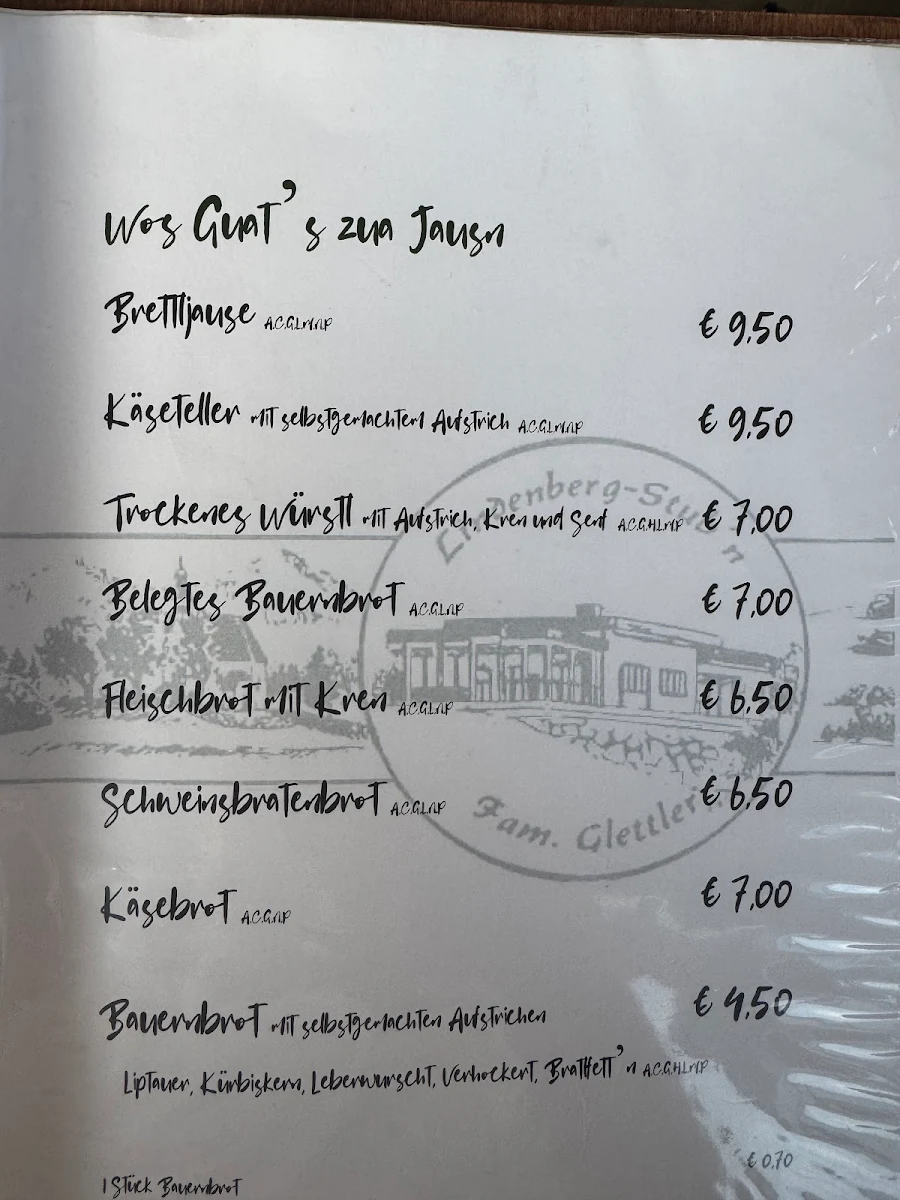 Wos Guat's zua Jausn
Brettljause A,C,G,L,M,N,P € 9,50
Käseteller mit selbstgemachtem Aufstrich A,C,G,L,M,N,P € 9,50
Trockenes Würstl mit Aufstrich, Kren und Senf A,C,G,H,L,M,P € 7,00
Belegtes Bauernbrot A,C,G,L,N,P € 7,00
Fleischbrot mit Kren A,C,G,L,N,P € 6,50
Schweinsbratenbrot A,C,G,L,N,P € 6,50
Käsebrot A,C,G,N,P € 7,00
Bauernbrot mit selbstgemachten Aufstrichen € 4,50
Liptauer, Kürbiskern, Leberwurscht, Verhockert, Bratlfett'n A,C,G,H,L,M,P
1 Stück Bauernbrot € 0,70
Lindenberg-Stub'n
Fam. Glettler